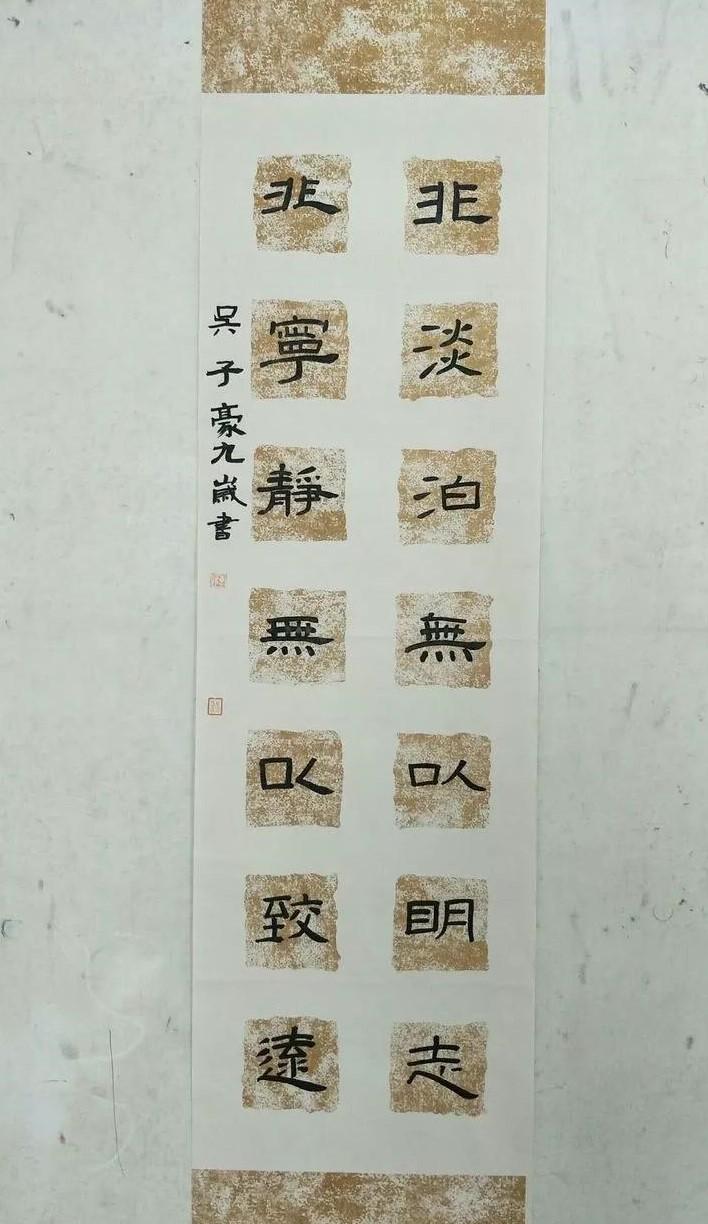 非淡泊無以明志
非寧靜無以致遠
吳子豪九歲書